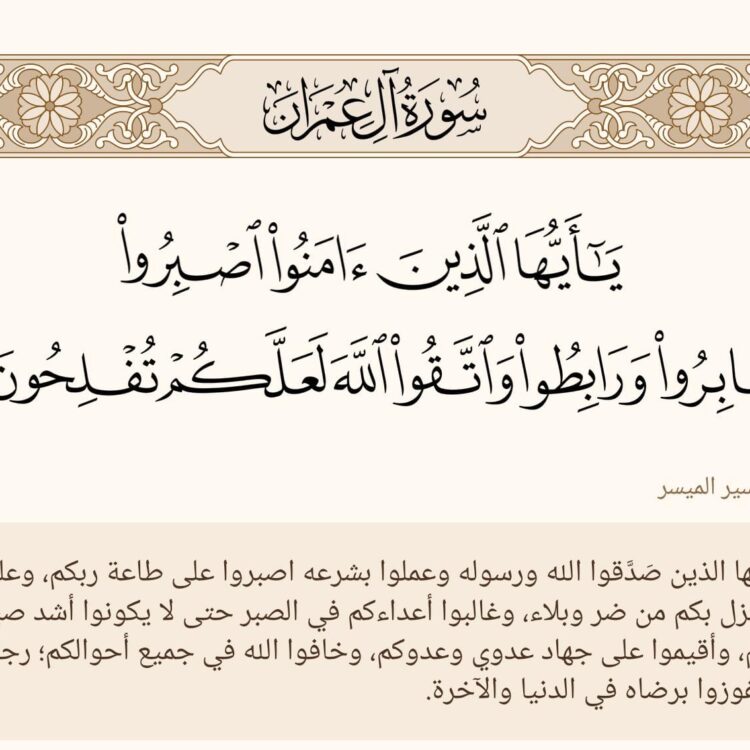 سُورَةُ آلِ عِمْرَان
يَـٰٓأَيُّهَا ٱلَّذِينَ ءَامَنُوا۟ ٱصْبِرُوا۟
ـابِرُوا۟ وَرَابِطُوا۟ وَٱتَّقُوا۟ ٱللَّهَ لَعَلَّكُمْ تُفْلِحُونَ
ـسير الميسر
ـها الذين صَدَّقوا الله ورسوله وعملوا بشرعه اصبروا على طاعة ربكم، وعلـ
ـزل بكم من ضر وبلاء، وغالبوا أعداءكم في الصبر حتى لا يكونوا أشد صـ
ـم، وأقيموا على جهاد عدوي وعدوكم، وخافوا الله في جميع أحوالكم؛ رجـ
ـفوزوا برضاه في الدنيا والآخرة.